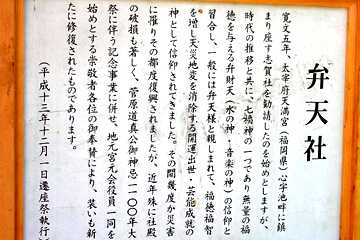 弁天社
寛文五年、太宰府天満宮(福岡県)心字池畔に鎮
まり座す志賀社を勧請したのを始めとしますが、
時代の推移と共に、七福神の一つであり無量の福
徳を与える弁財天(水の神・音楽の神)の信仰と
習合し、一般には弁天様と親しまれて、福徳福智
を増し天災地変を消除する開運出世・芸能成就の
神として信仰されてきました。その間幾度か災害
に罹りその都度復興されましたが、近年殊に社殿
の破損も著しく、菅原道真公御神忌一一〇〇年大
祭に伴う記念事業に併せ、地元宮元会役員一同を
始めとする崇敬者各位の御奉賛により、装いも新
たに修復されたものであります。
(平成十三年十二月一日遷座祭執行)